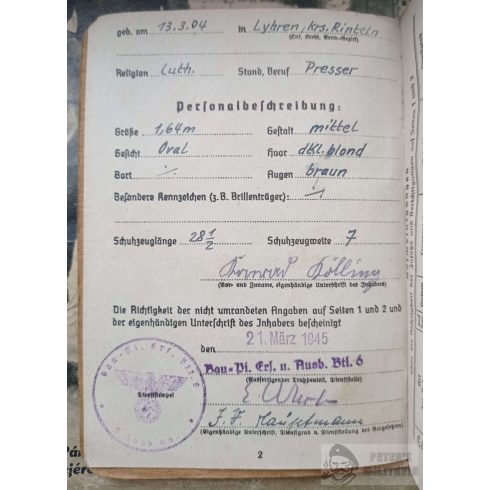 geb. am 13.3.04 in Lyhren, krs. Rinteln
(Ort, Kreis, Verw.-Bezirk)
Religion Luth. Stand, Beruf Presser
Personalbeschreibung:
Größe 1,64m Gestalt mittel
Gesicht Oval Haar dkl. blond
Bart ./. Augen braun
Besondere Kennzeichen (z. B. Brillenträger): ./.
Schuhzeuglänge 28 1/2 Schuhzeugweite 7
Konrad Kölling
(Vor- und Zuname, eigenhändige Unterschrift des Inhabers)
Die Richtigkeit der nicht umrandeten Angaben auf Seiten 1 und 2 und
der eigenhändigen Unterschrift des Inhabers bescheinigt
den 21. März 1945
Bau-Pi. Ers. u. Ausb. Btl. 6
(Ausfertigender Truppenteil, Dienststelle)
Bau-Pi. Ers. Btl. 6
Dienststempel
Hauptmann
(Eigenhändige Unterschrift, Dienstgrad u. Dienststellung des Vorgesetzten)
2
PETER'S
MILITARIA